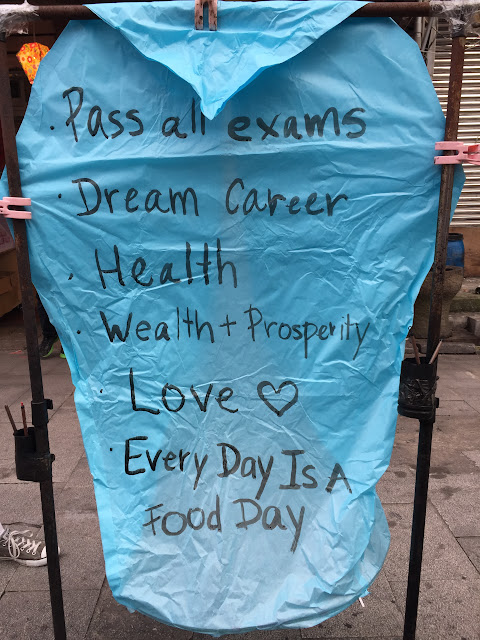 · Pass all exams
· Dream Career
· Health
· Wealth + Prosperity
· Love ♡
· Every Day Is A
Food Day